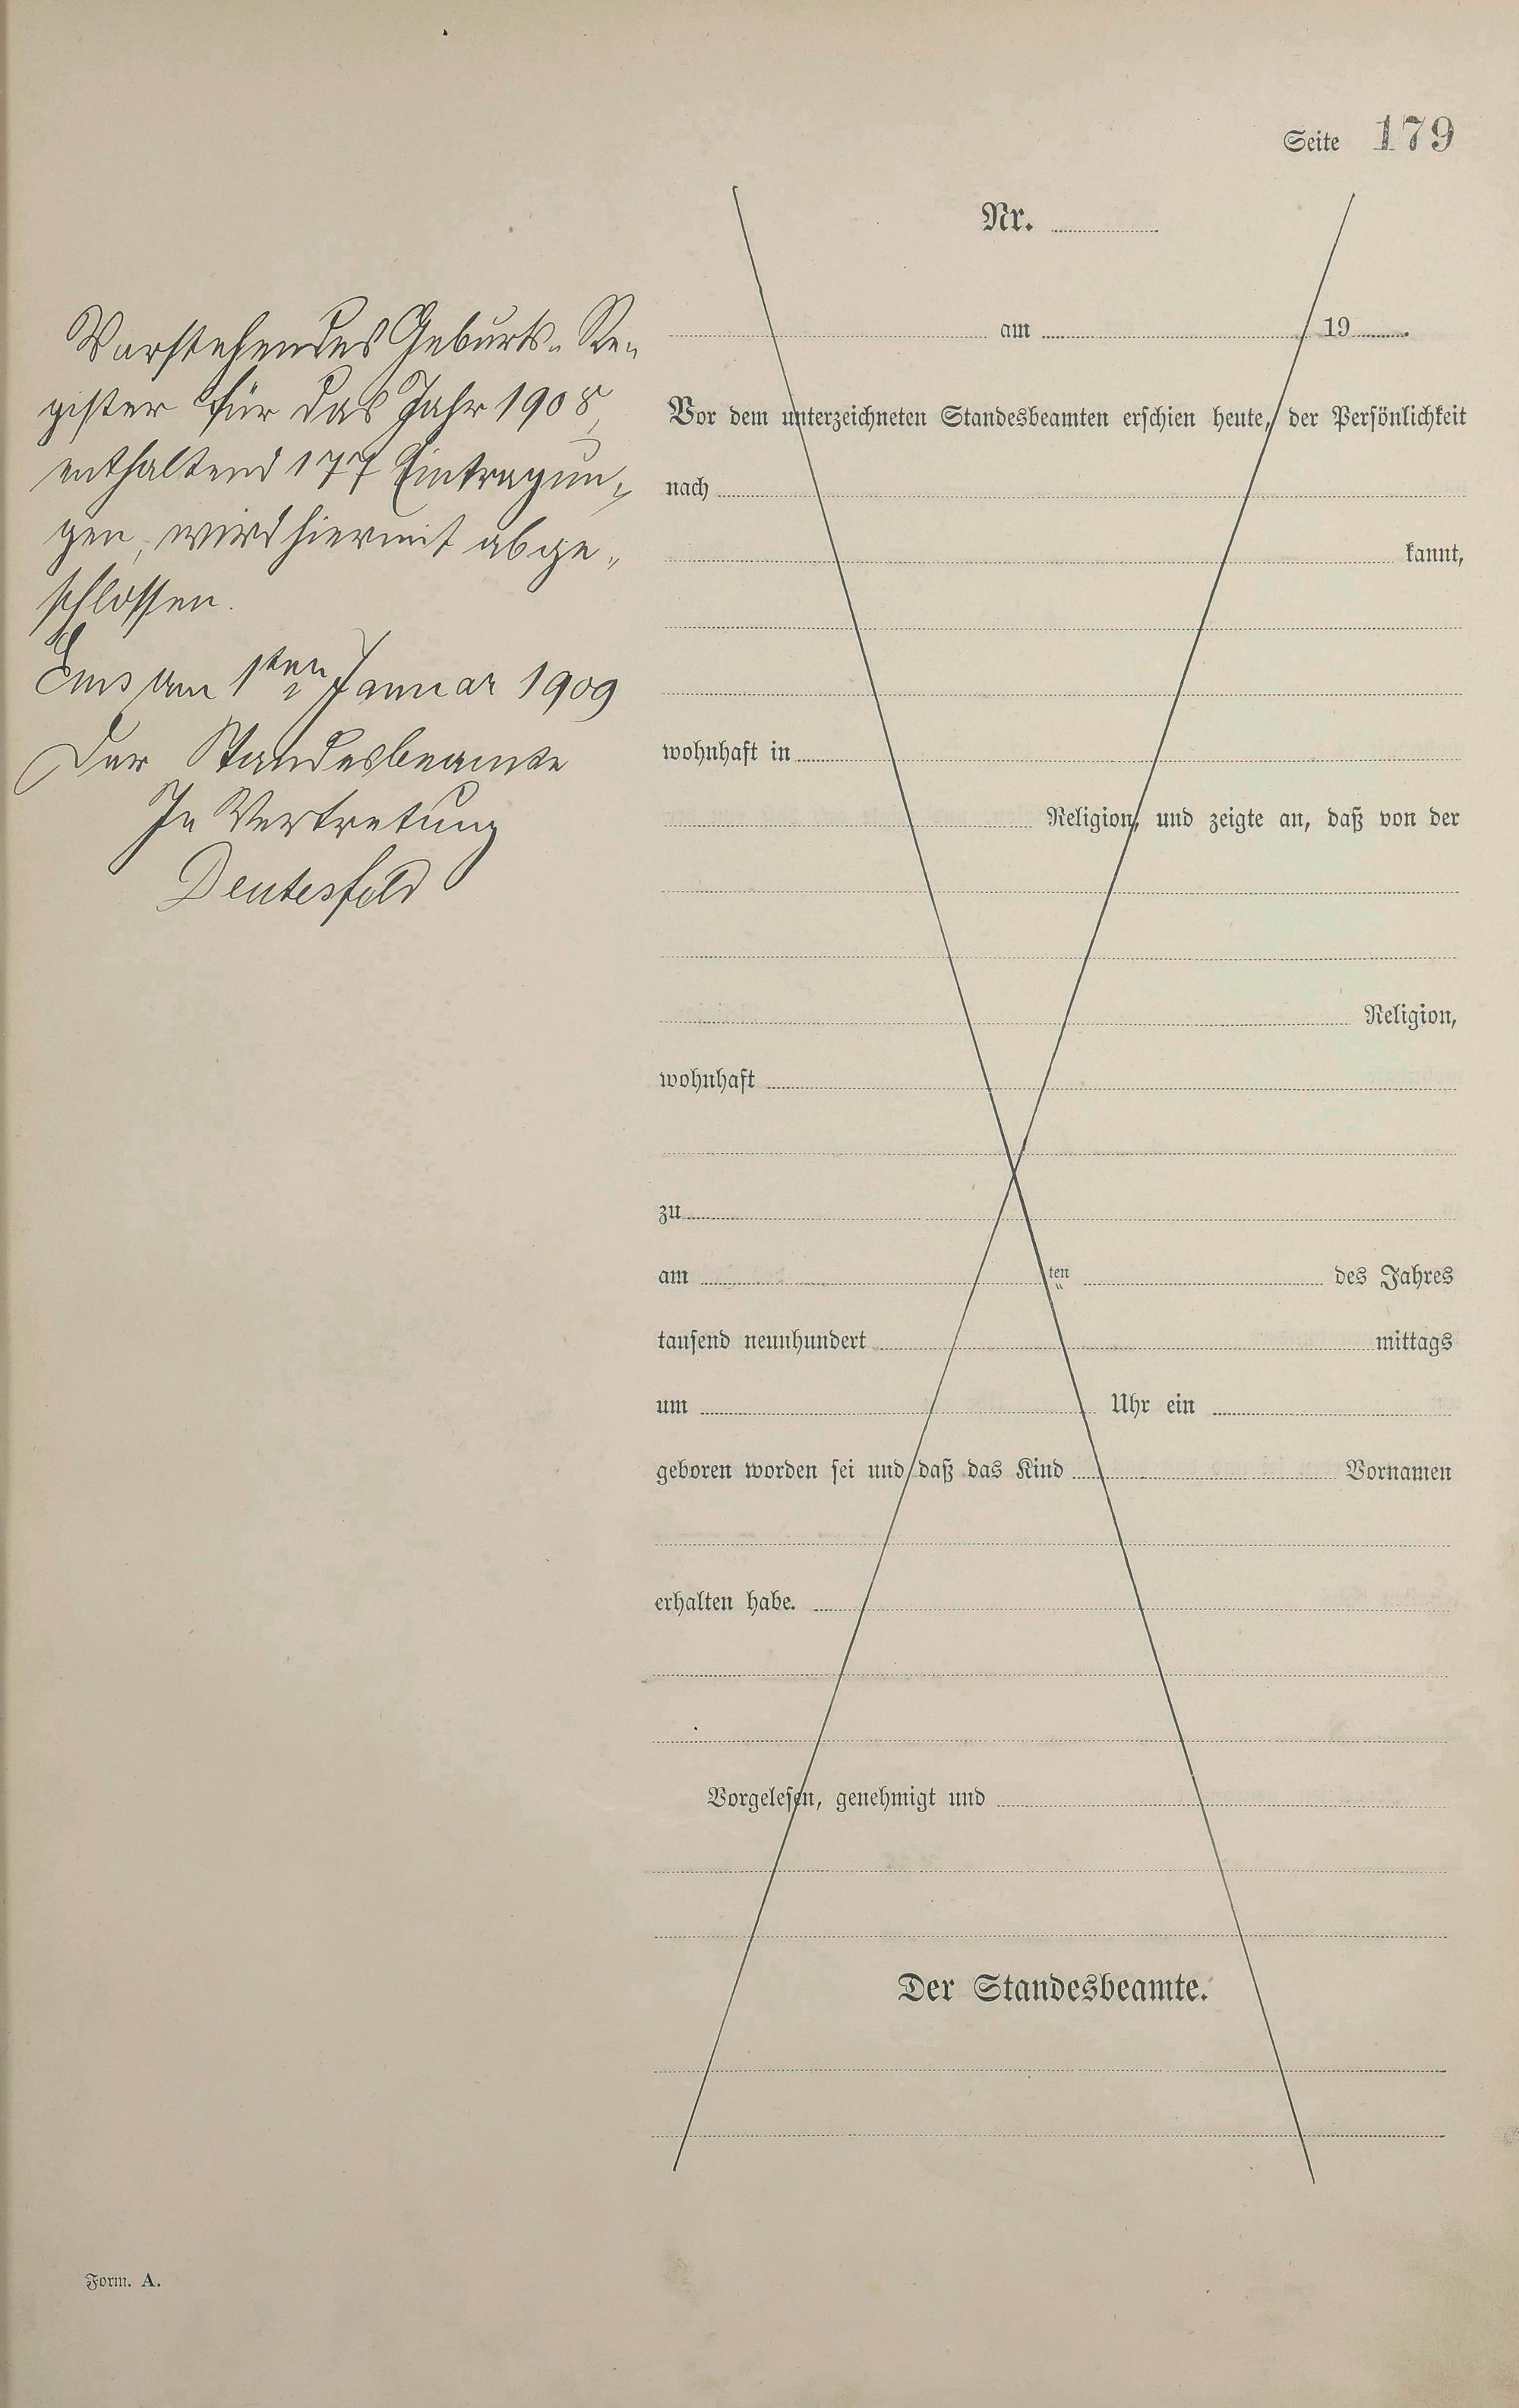 Seite 179
Nr.
am 19
Vorstehendes Geburts-Re-
gister für das Jahr 1908,
enthaltend 177 Eintragun-
gen, wird hiermit abge-
schlossen.
Ems am 1ten Januar 1909
Der Standesbeamte
In Vertretung
Deutesfeld
Vor dem unterzeichneten Standesbeamten erschien heute, der Persönlichkeit
nach
kannt,
wohnhaft in
Religion, und zeigte an, daß von der
Religion,
wohnhaft
zu
am ten des Jahres
tausend neunhundert mittags
um Uhr ein
geboren worden sei und daß das Kind Vornamen
erhalten habe.
Vorgelesen, genehmigt und
Der Standesbeamte.
Form. A.